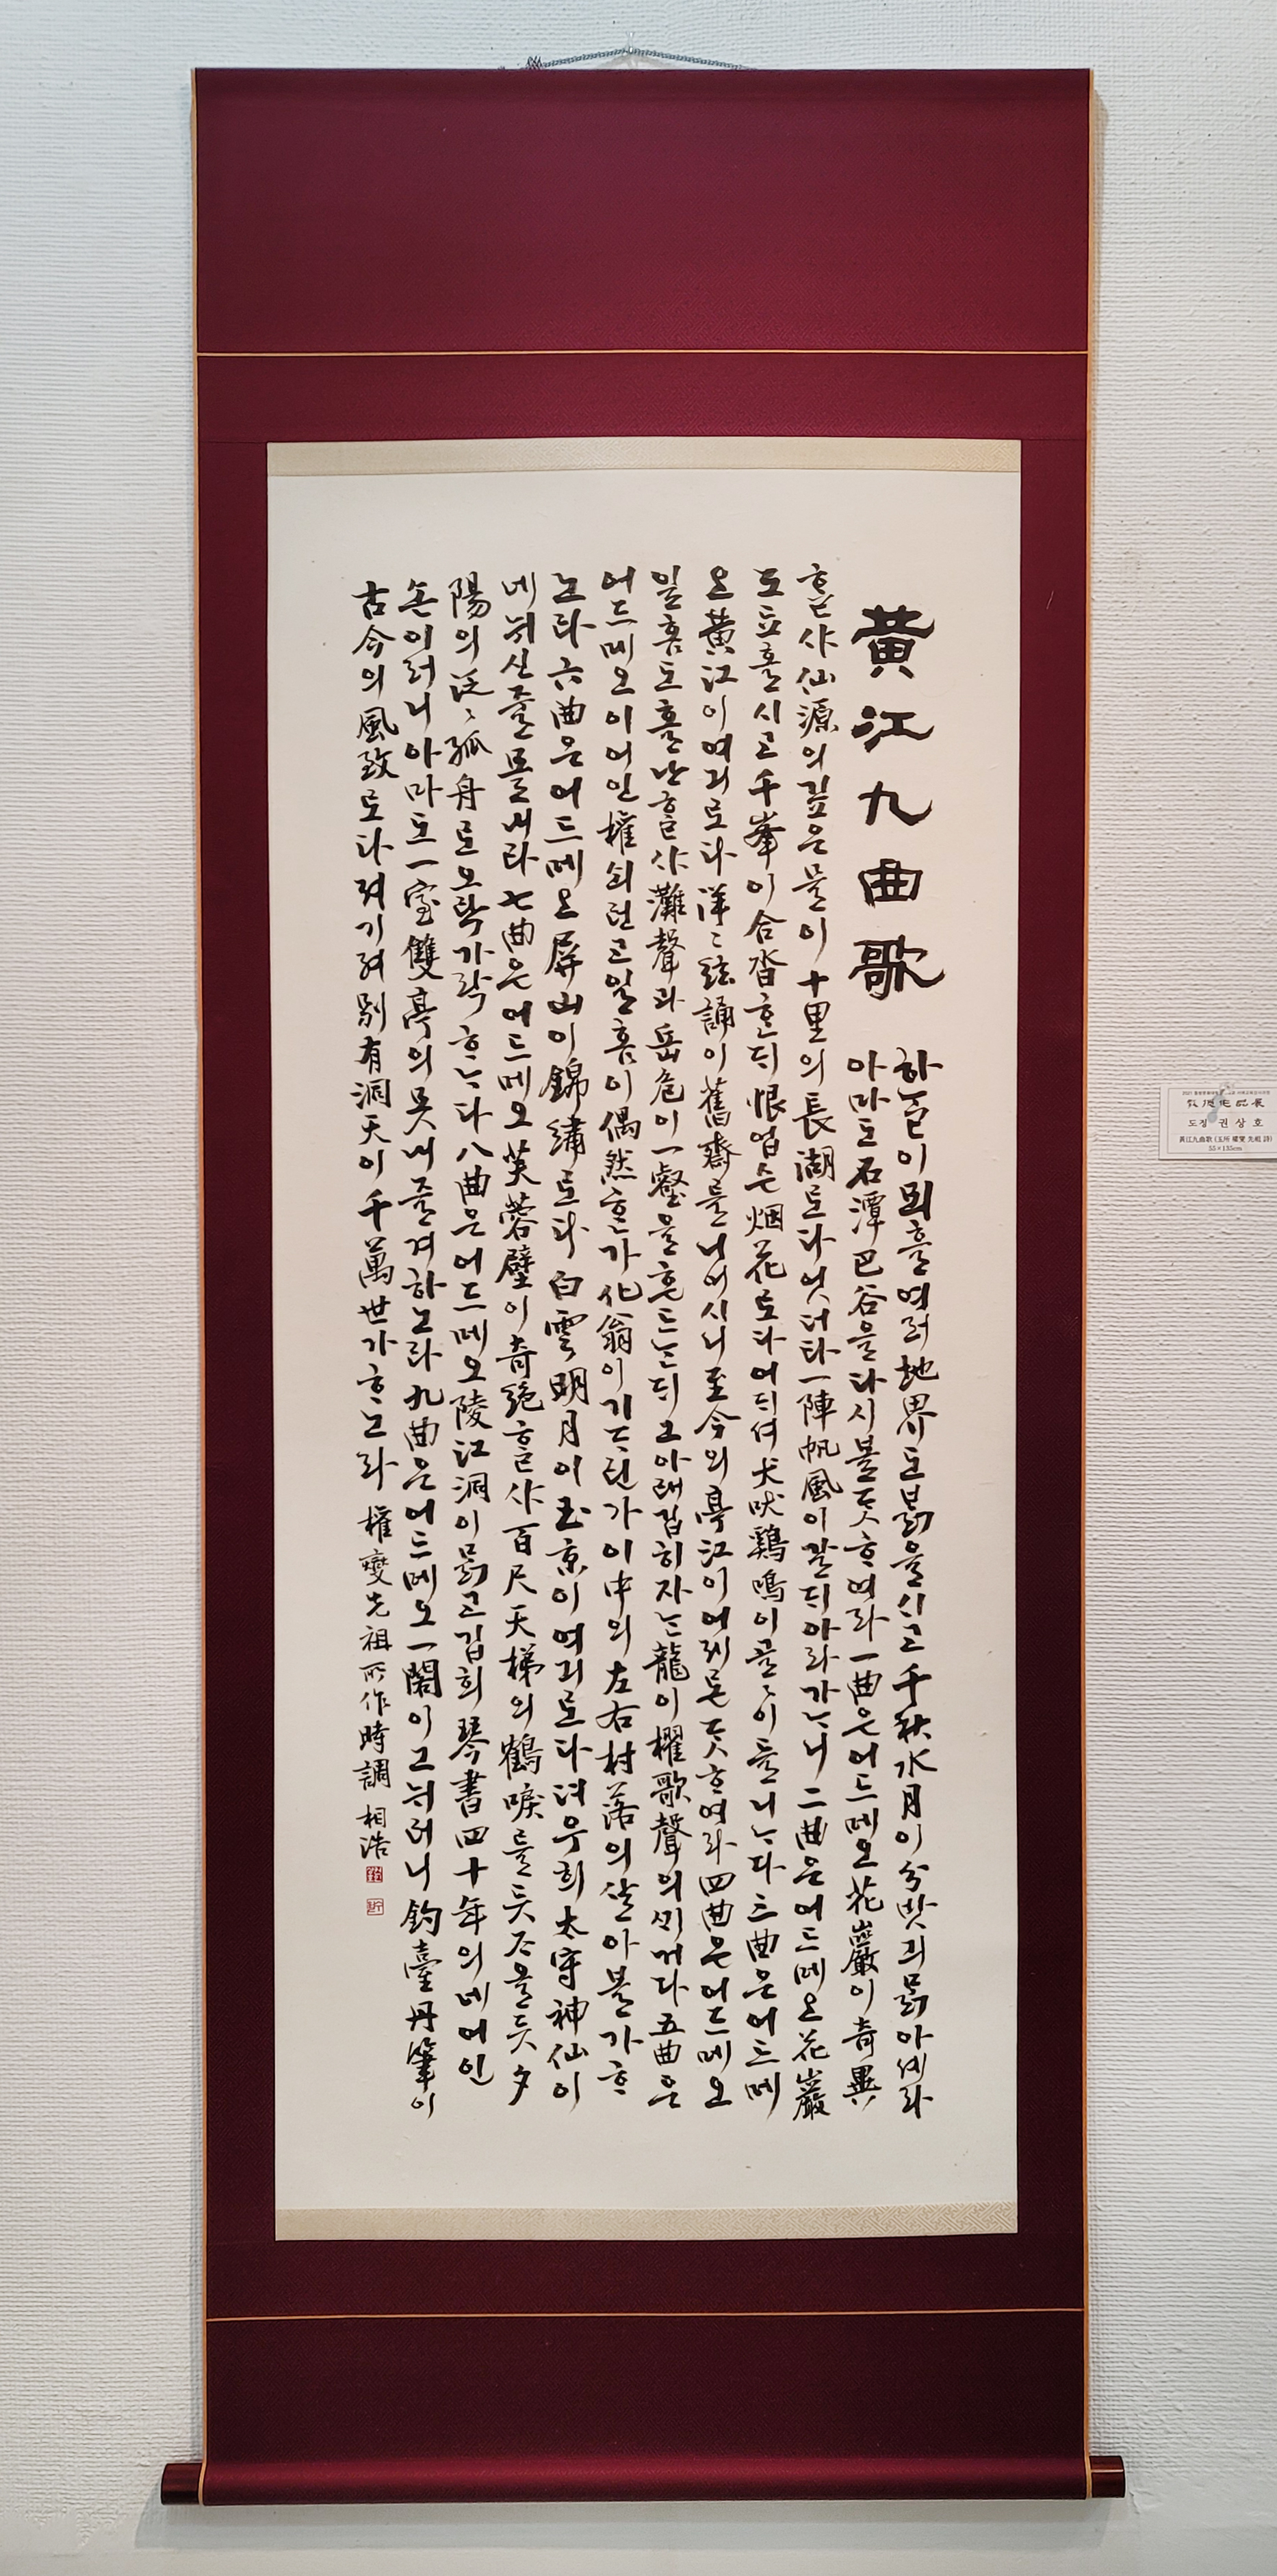 黃江九曲歌
하ᄂᆞᆯ이 뫼흘 여러 地界도 ᄇᆞᆰ을시고 千秋水月이 分밧긔 ᄆᆞᆰ아셰라
아마도 石潭巴谷을 다시 볼 ᄃᆞᆺ ᄒᆞ여라 一曲은 어드메오 花巖이 奇異
ᄒᆞᆯ샤 仙源의 깁은 믈이 十里의 長湖로다 엇더타 一陣帆風이 갈 ᄃᆡ 아라 가ᄂᆞ니 二曲은 어드메오 花巖
도 됴흘시고 千峯이 合沓ᄒᆞᆫ ᄃᆡ 恨업슨 烟花로다 어ᄃᆡ셔 犬吠鷄鳴이 골〻이 들니ᄂᆞ다 三曲은 어드메
오 黃江이 여긔로다 洋〻絃誦이 舊齋를 니어시니 至今의 亭江이 어제론 ᄃᆞᆺ ᄒᆞ여라 四曲은 어드메오
일홈도 홀난ᄒᆞᆯ샤 灘聲과 岳危이 一壑을 흔드ᄂᆞᆫ ᄃᆡ 그 아래 깁히 자ᄂᆞᆫ 龍이 櫂歌聲의 ᄭᆡ거다 五曲은
어드메오 이 어인 權쇠런고 일홈이 偶然ᄒᆞᆫ가 化翁이 기ᄃᆞ린가 이 中의 左右村落의 살아볼가 ᄒᆞ
노라 六曲은 어드메오 屛山이 錦繡로다 白雲明月이 玉京이 여긔로다 뎌 우희 太守神仙이
네 뉘신 줄 몰내라 七曲은 어드메오 芙蓉壁이 奇絶ᄒᆞᆯ샤 百尺天梯의 鶴唳를 듯ᄌᆞ올 듯 夕
陽의 泛〻孤舟로 오락가락 ᄒᆞᄂᆞ다 八曲은 어드메오 陵江洞이 ᄆᆞᆰ고 깁희 琴書四十年의 네 어인
손이러니 아마도 一室雙亭의 못내 즐겨 하노라 九曲은 어드메오 一閣이 그 뉘러니 釣臺丹筆이
古今의 風致로다 져기 져 別有洞天이 千萬世가 ᄒᆞ노라 權燮先祖所作時調 相浩
도정 권상호
黃江九曲歌 (玉所 權燮 先祖 詩)
55×135cm